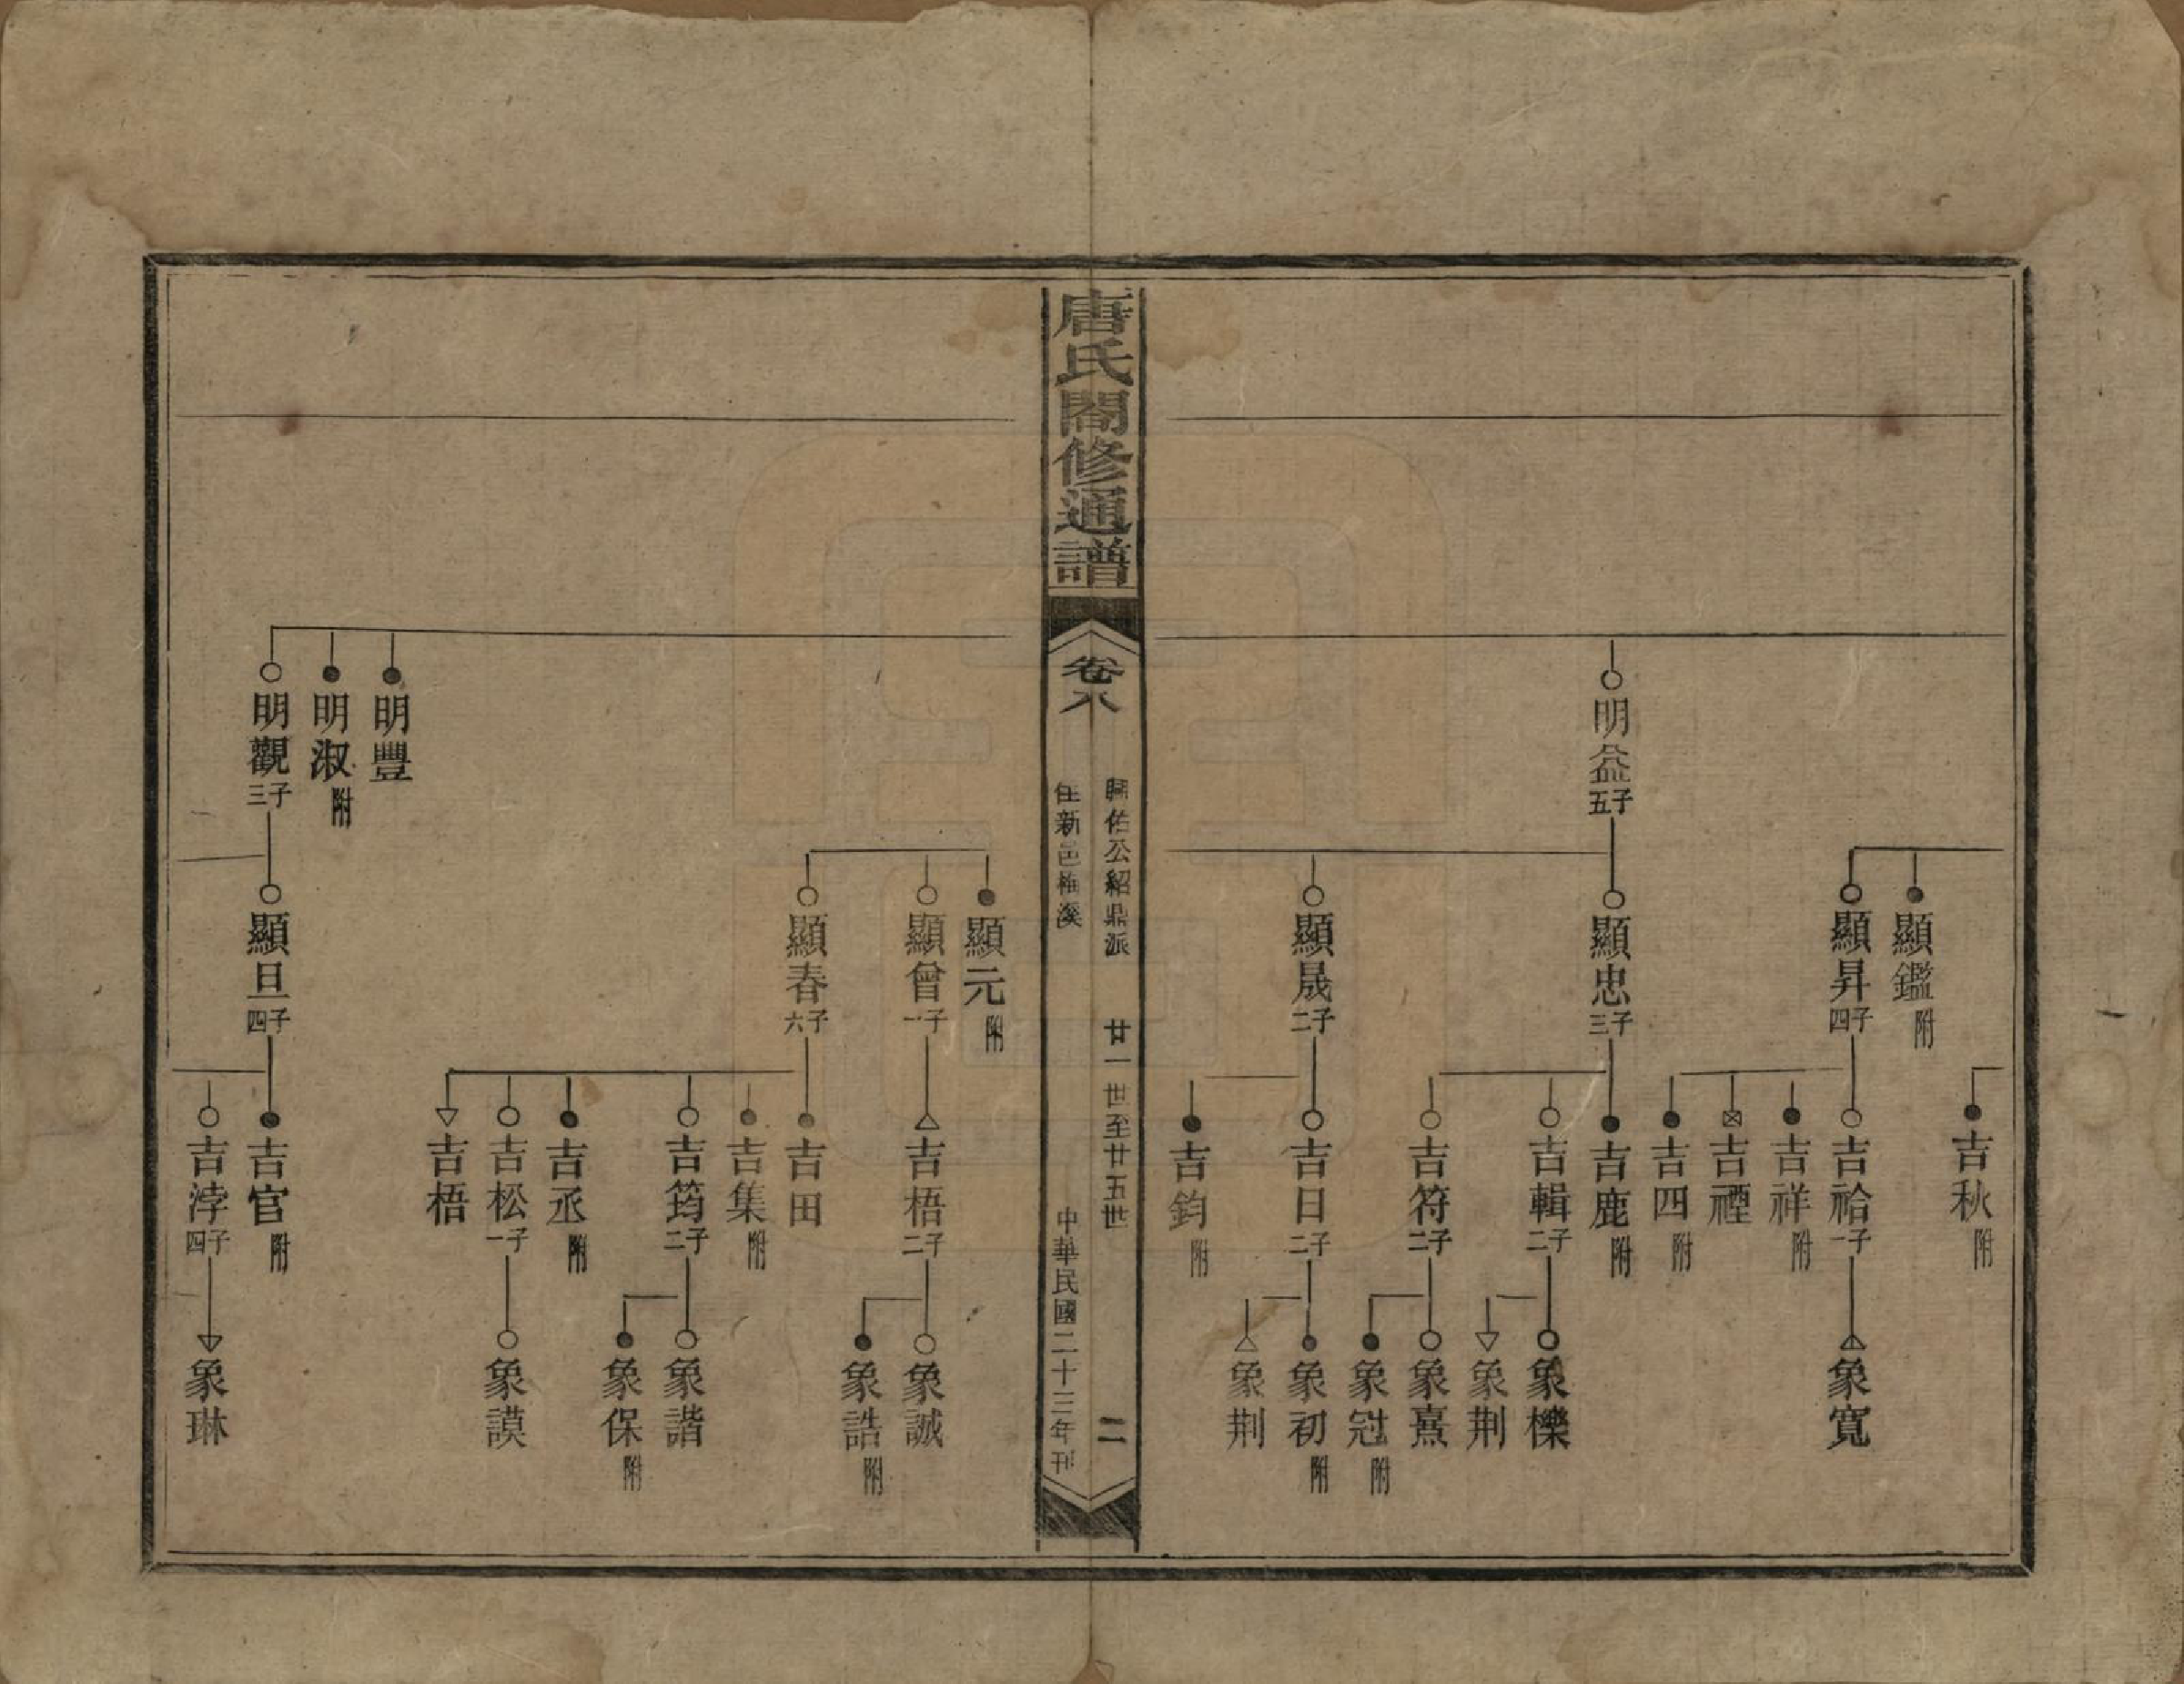 吉秋附
顯鑑附
顯昇四子
吉祫一子
象寬
吉祥附
吉禋
吉四附
明益五子
顯忠三子
吉鹿附
吉輯二子
象櫟
象荆
吉符二子
象熹
象冠附
顯晟二子
吉日二子
象初附
象荆
吉鈞附
唐氏閤修通譜
卷八
興佑公紹鼎派 廿一世至廿五世
住新邑梅溪
二
中華民國二十三年刊
顯元附
顯曾一子
吉梧二子
象誠
象誥附
顯春六子
吉田
吉集附
吉筠二子
象諧
象保附
吉丞附
吉松一子
象謨
吉梧
明豐
明淑附
明觀三子
顯旦四子
吉官附
吉浡四子
象琳